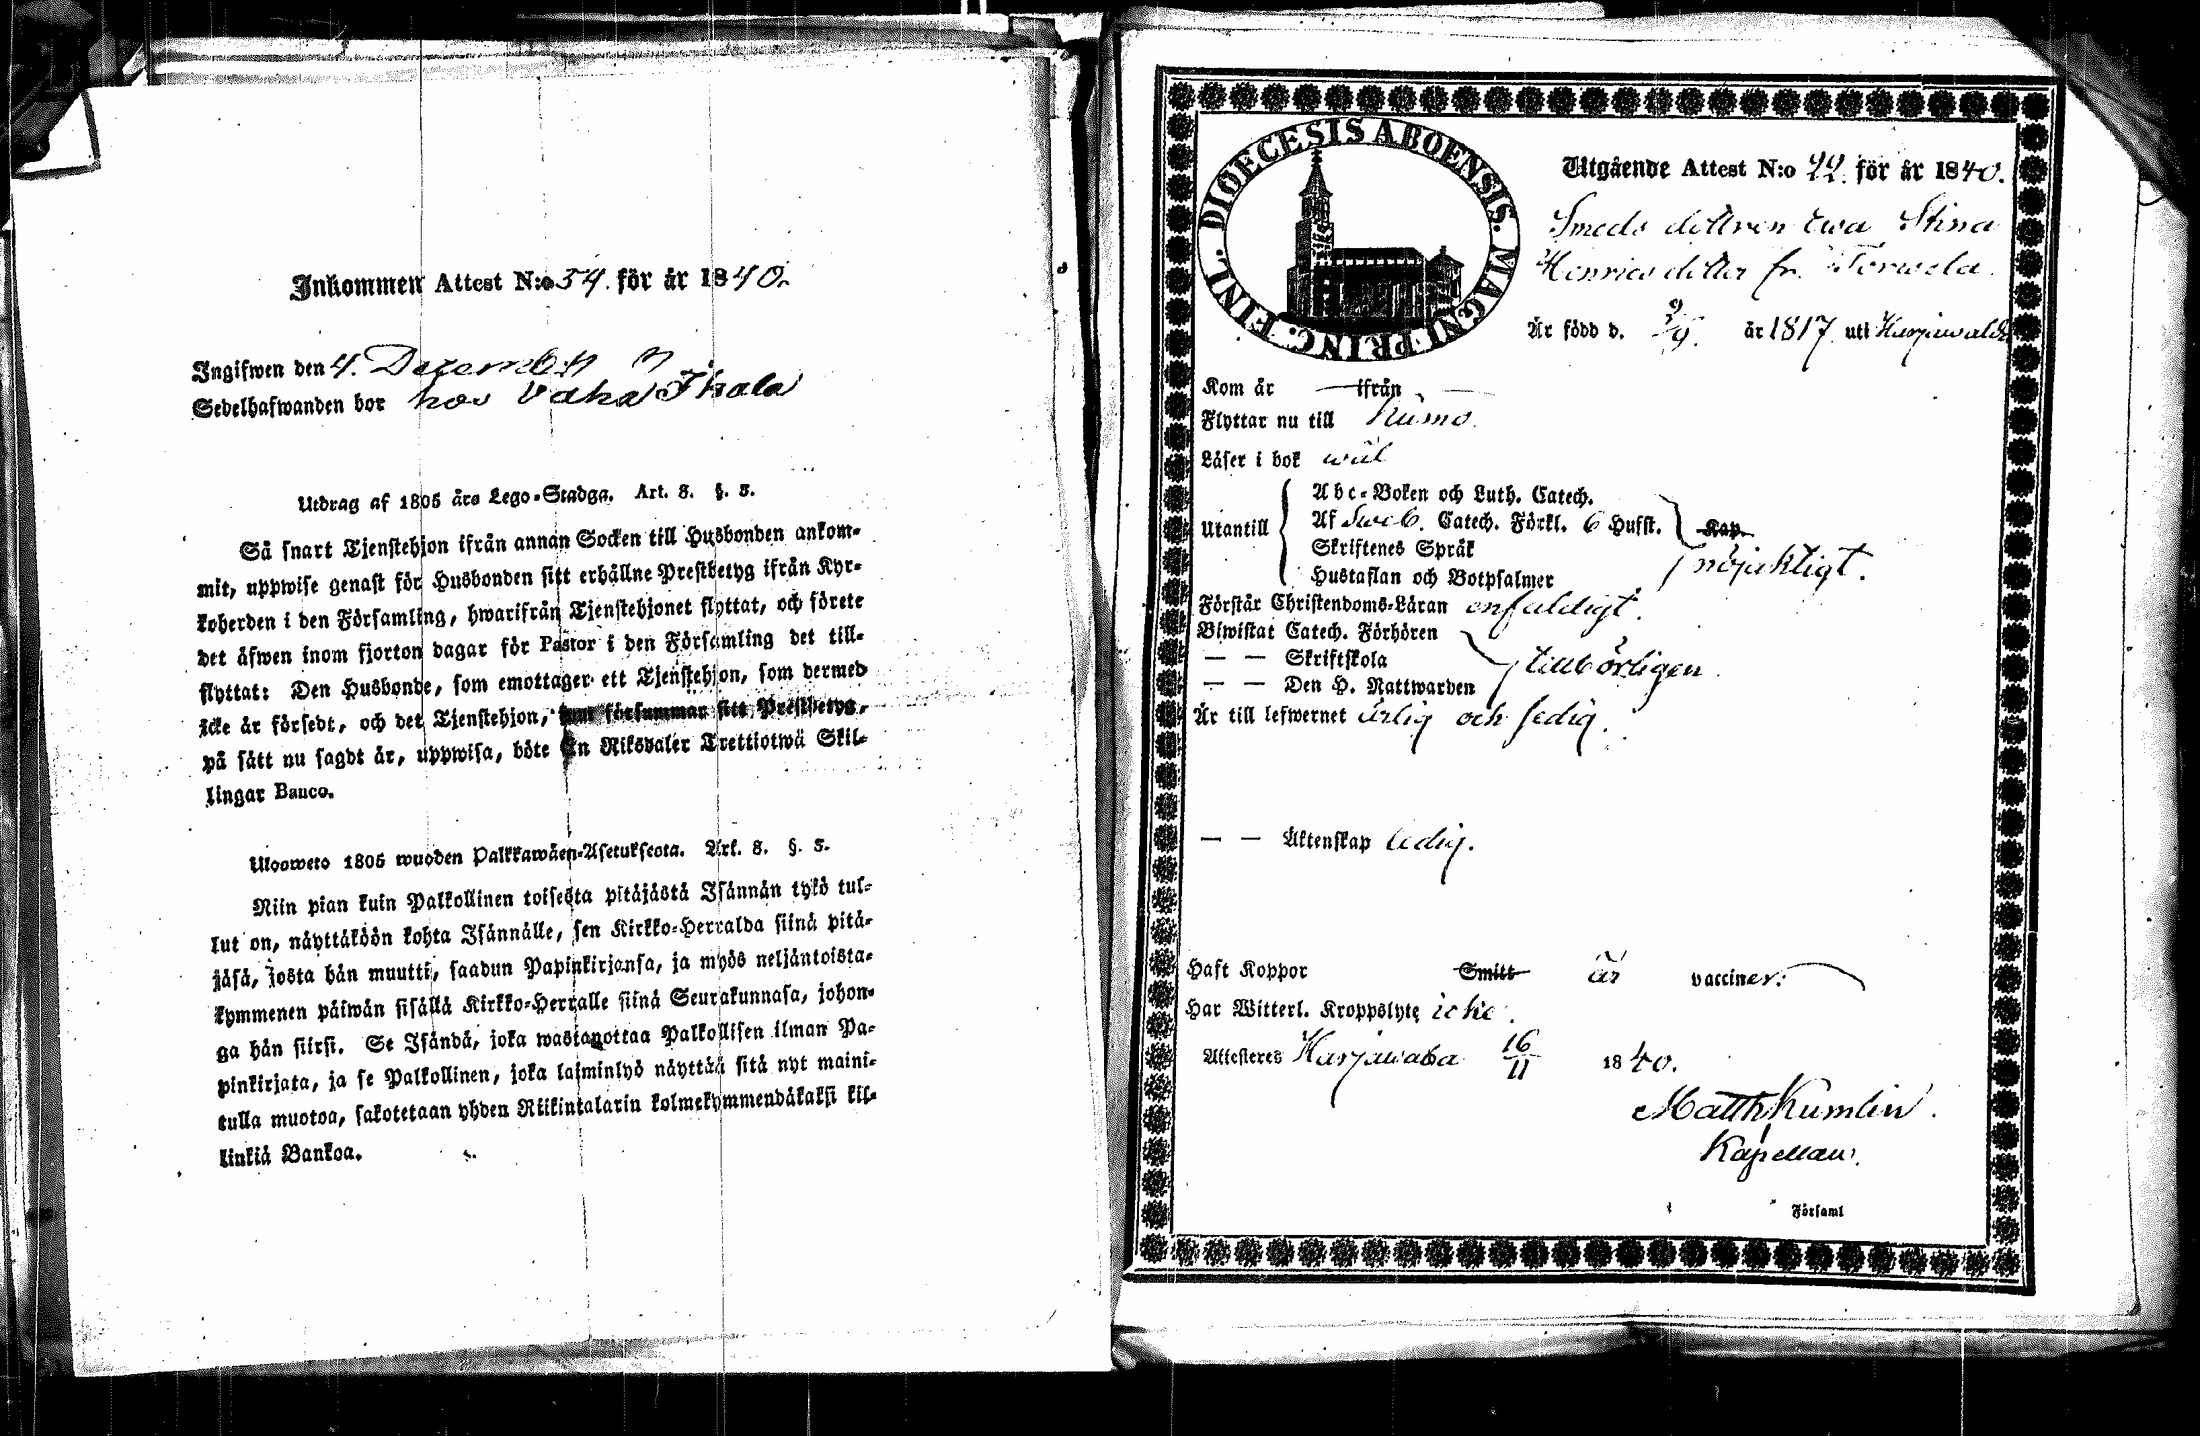 Inkommen Attest N:o 54. för år 1840.
Ingifwen den 4. December
Sedelhafwanden bor hos Vaha Ihala
Utdrag af 1805 års Lego-Stadga. Art. 8. §. 3.
Så snart Tjenstehjon ifrån annan Socken till Husbonden ankom-
mit, uppwise genast för Husbonden sitt erhållne Prestbetyg ifrån Kyr-
koherden i den Församling, hwarifrån Tjenstehjonet flyttat, och förete
det äfwen inom fjorton dagar för Pastor i den Församling det till-
flyttat: Den Husbonde, som emottager ett Tjenstehjon, som dermed
icke är försedt, och det Tjenstehjon, som försummar sitt Prestbetyg,
på sätt nu sagdt är, uppwisa, böte En Riksdaler Trettiotwå Skil-
lingar Banco.
Ulosweto 1805 wuoden Palkkawäen-Asetuksesta. Art. 8. §. 3.
Niin pian kuin Palkollinen toisesta pitäjästä Isännän tykö tul-
lut on, näyttäköön kohta Isännälle, sen Kirkko-Herralda siinä pitä-
jäsä, josta hän muutti, saadun Papinkirjansa, ja myös neljäntoista-
kymmenen päiwän sisällä Kirkko-Herralle siinä Seurakunnasa, johon-
ga hän siirsi. Se Isändä, joka wastanottaa Palkollisen ilman Pa-
pinkirjata, ja se Palkollinen, joka laiminlyö näyttää sitä nyt maini-
tulla muotoa, sakotetaan yhden Riikintalarin kolmekymmendäkaksi kil-
linkiä Bankoa.
DIOECESIS ABOENSIS. MAGNI PRINC. FINL.
Utgående Attest N:o 22. för år 1840.
Smeds dottren Ewa Stina
Henricsdotter fr. Torwela.
Är född d. 9/9. år 1817 uti Harjawalda
Kom år — ifrån —
Flyttar nu till Kumo.
Läser i bok wäl
Abc-Boken och Luth. Catech.
Utantill Af Sweb. Catech. Förkl. 6 Hufst. Kap.
Skriftenes Språk
nöjaktigt.
Hustaflan och Botpsalmer
Förstår Christendoms-Läran enfaldigt.
Biwistat Catech. Förhören
— — Skriftskola tillbörligen
— — Den H. Nattwarden
Är till lefwernet ärlig och sedig.
— — Äktenskap ledig.
Haft Koppor Smitt är vacciner:
Har Witterl. Kroppslyte icke.
Attesteres Harjawalda 16/11 1840.
Matth Kumlin.
Kapellan.
Församl